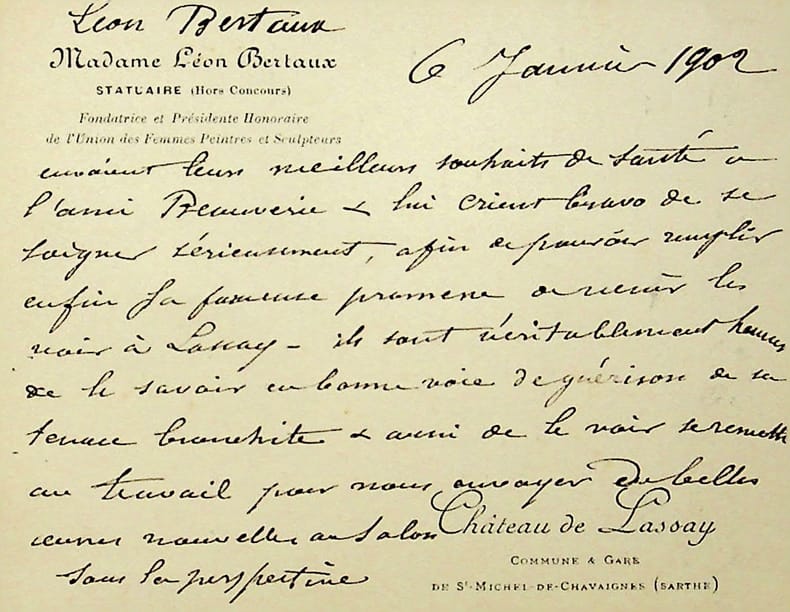 Léon Bertaux
Madame Léon Bertaux
STATUAIRE (Hors Concours)
Fondatrice et Présidente Honoraire
de l'Union des Femmes Peintres et Sculpteurs
6 Janvier 1902
envoient leurs meilleurs souhaits de santé à
l'ami Beauverie & lui crient bravo de se
soigner sérieusement, afin de pouvoir remplir
enfin sa fameuse promesse de venir les
voir à Lassay – ils sont véritablement heureux
de le savoir en bonne voie de guérison de sa
tenace bronchite & aussi de le voir se remettre
au travail pour nous envoyer de belles
œuvres nouvelles au Salon
sous la
Château de Lassay
COMMUNE & GARE
DE St-MICHEL-DE-CHAVAIGNES (SARTHE)